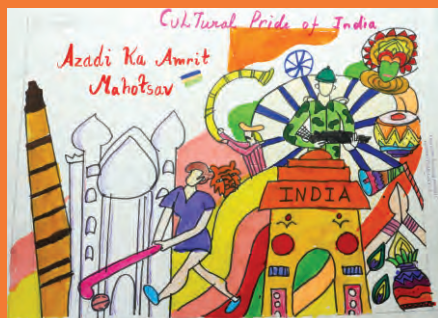 Cultural Pride of India
Azadi Ka Amrit
Mahotsav
INDIA